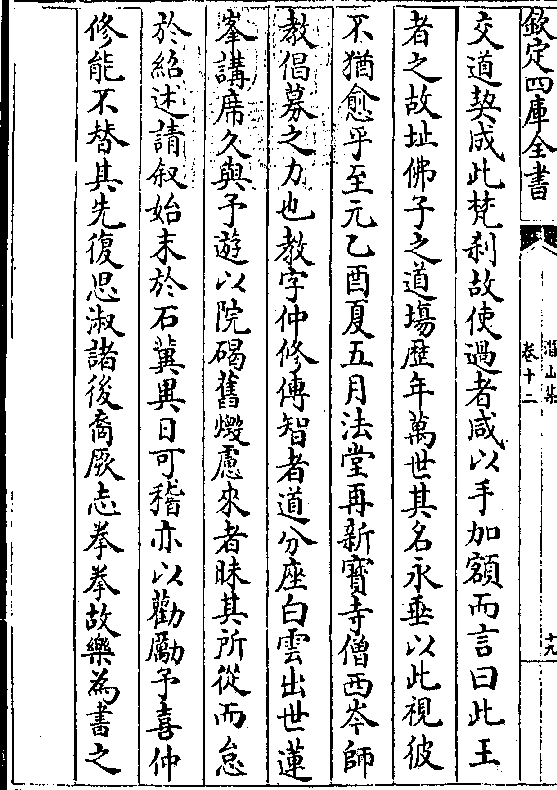 欽定四庫全書
潛山集
卷十二
十九
交道契成此梵刹故使過者咸以手加額而言曰此王
者之故址佛子之道場歴年萬世其名永垂以此視彼
不猶愈乎至元乙酉夏五月法堂再新寳寺僧西岑師
教倡募之力也教字仲修傳智者道分座白雲出世蓮
峯講席久與予遊以院碣舊燬慮來者昧其所從而怠
於紹述請叙始末於石冀異日可稽亦以勸勵予喜仲
修能不替其先復思淑諸後裔厥志拳拳故樂為書之